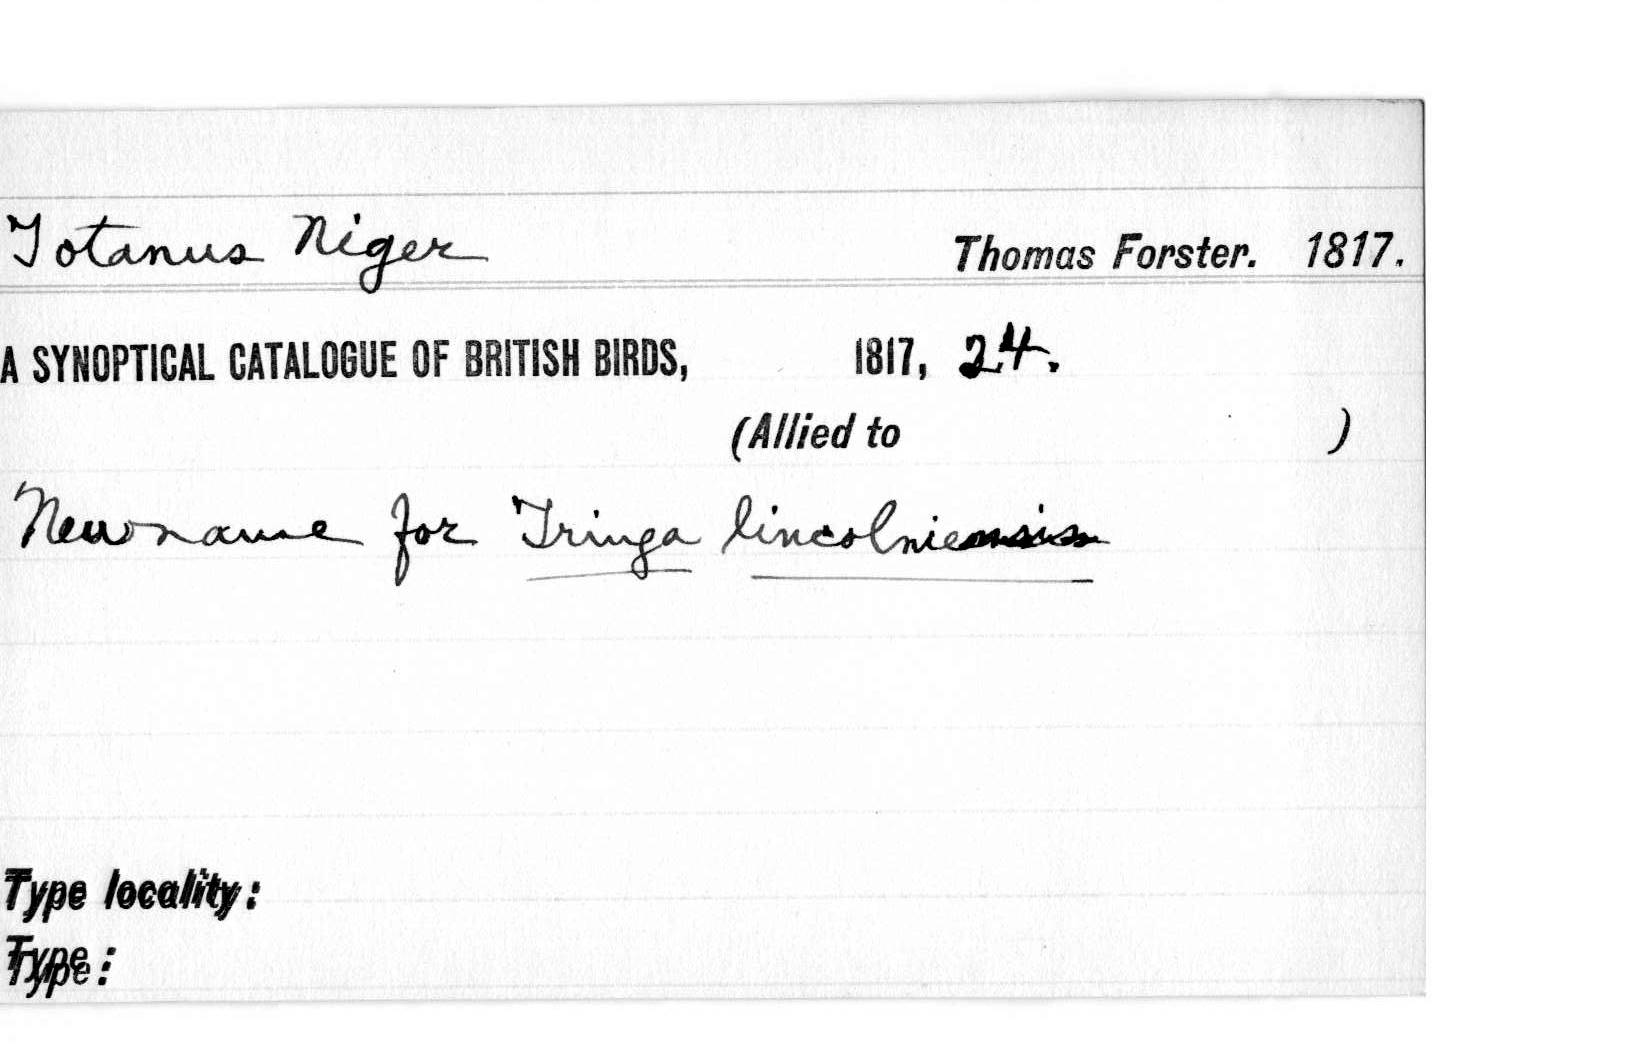 Totanus Niger Thomas Forster. 1817.
A SYNOPTICAL CATALOGUE OF BRITISH BIRDS, 1817, 24.
(Allied to )
New name for Tringa
Type locality:
Type: